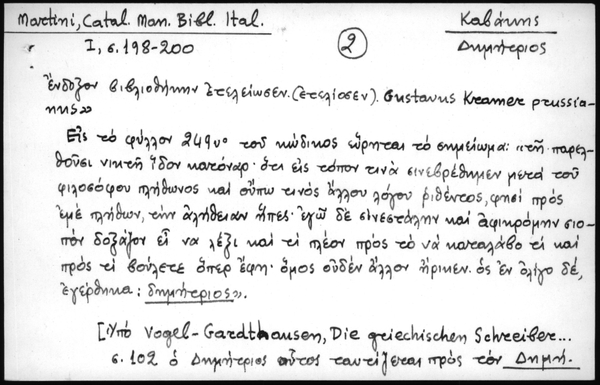 Martini, Catal. Man. Bibl. Ital. Καβάκης
I, σ. 198-200 ② Δημήτριος
ἔνδοξον βιβλιοθήκην ἐτελείωσεν. (ἐτελίοσεν). Gustavus Kramer prussia-
nus»
Εἰς τὸ φύλλον 249νο τοῦ κώδικος εὕρηται τὸ σημείωμα: «τῆ παρελ-
θοῦσι νικτῆ ἴδον κατόναρ· ὅτι εἰς τόπον τινὰ σινεβρέθημεν μετὰ τοῦ
φιλοσόφου πλήθωνος καὶ οὔπω τινὸς ἄλλου λόγου ριθέντος, φησὶ πρὸς
ἐμὲ πλήθων, τὴν ἀλήθειαν ἦπες· ἐγὼ δὲ σινεστάλην καὶ ἀφικρόμην σιο-
πὸν δοξάζον εἶ να λέξι καὶ τὶ πλέον πρὸς τὸ νὰ καταλάβο τὶ καὶ
πρὸς τὶ βούλετε ὅπερ ἔφη· ὅμος οὐδὲν ἄλλον ἤρικεν. ὁς ἐν ὀλίγο δέ,
ἐγέρθηκα: δημήτριος».
[Ὑπὸ Vogel-Gardthausen, Die griechischen Schreiber...
σ. 102 ὁ Δημήτριος οὗτος ταυτίζεται πρὸς τὸν Δημή-